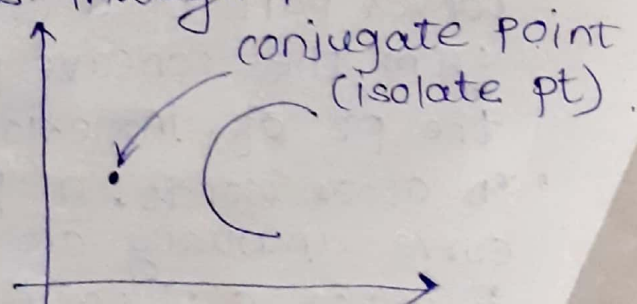 conjugate point
(isolate pt).